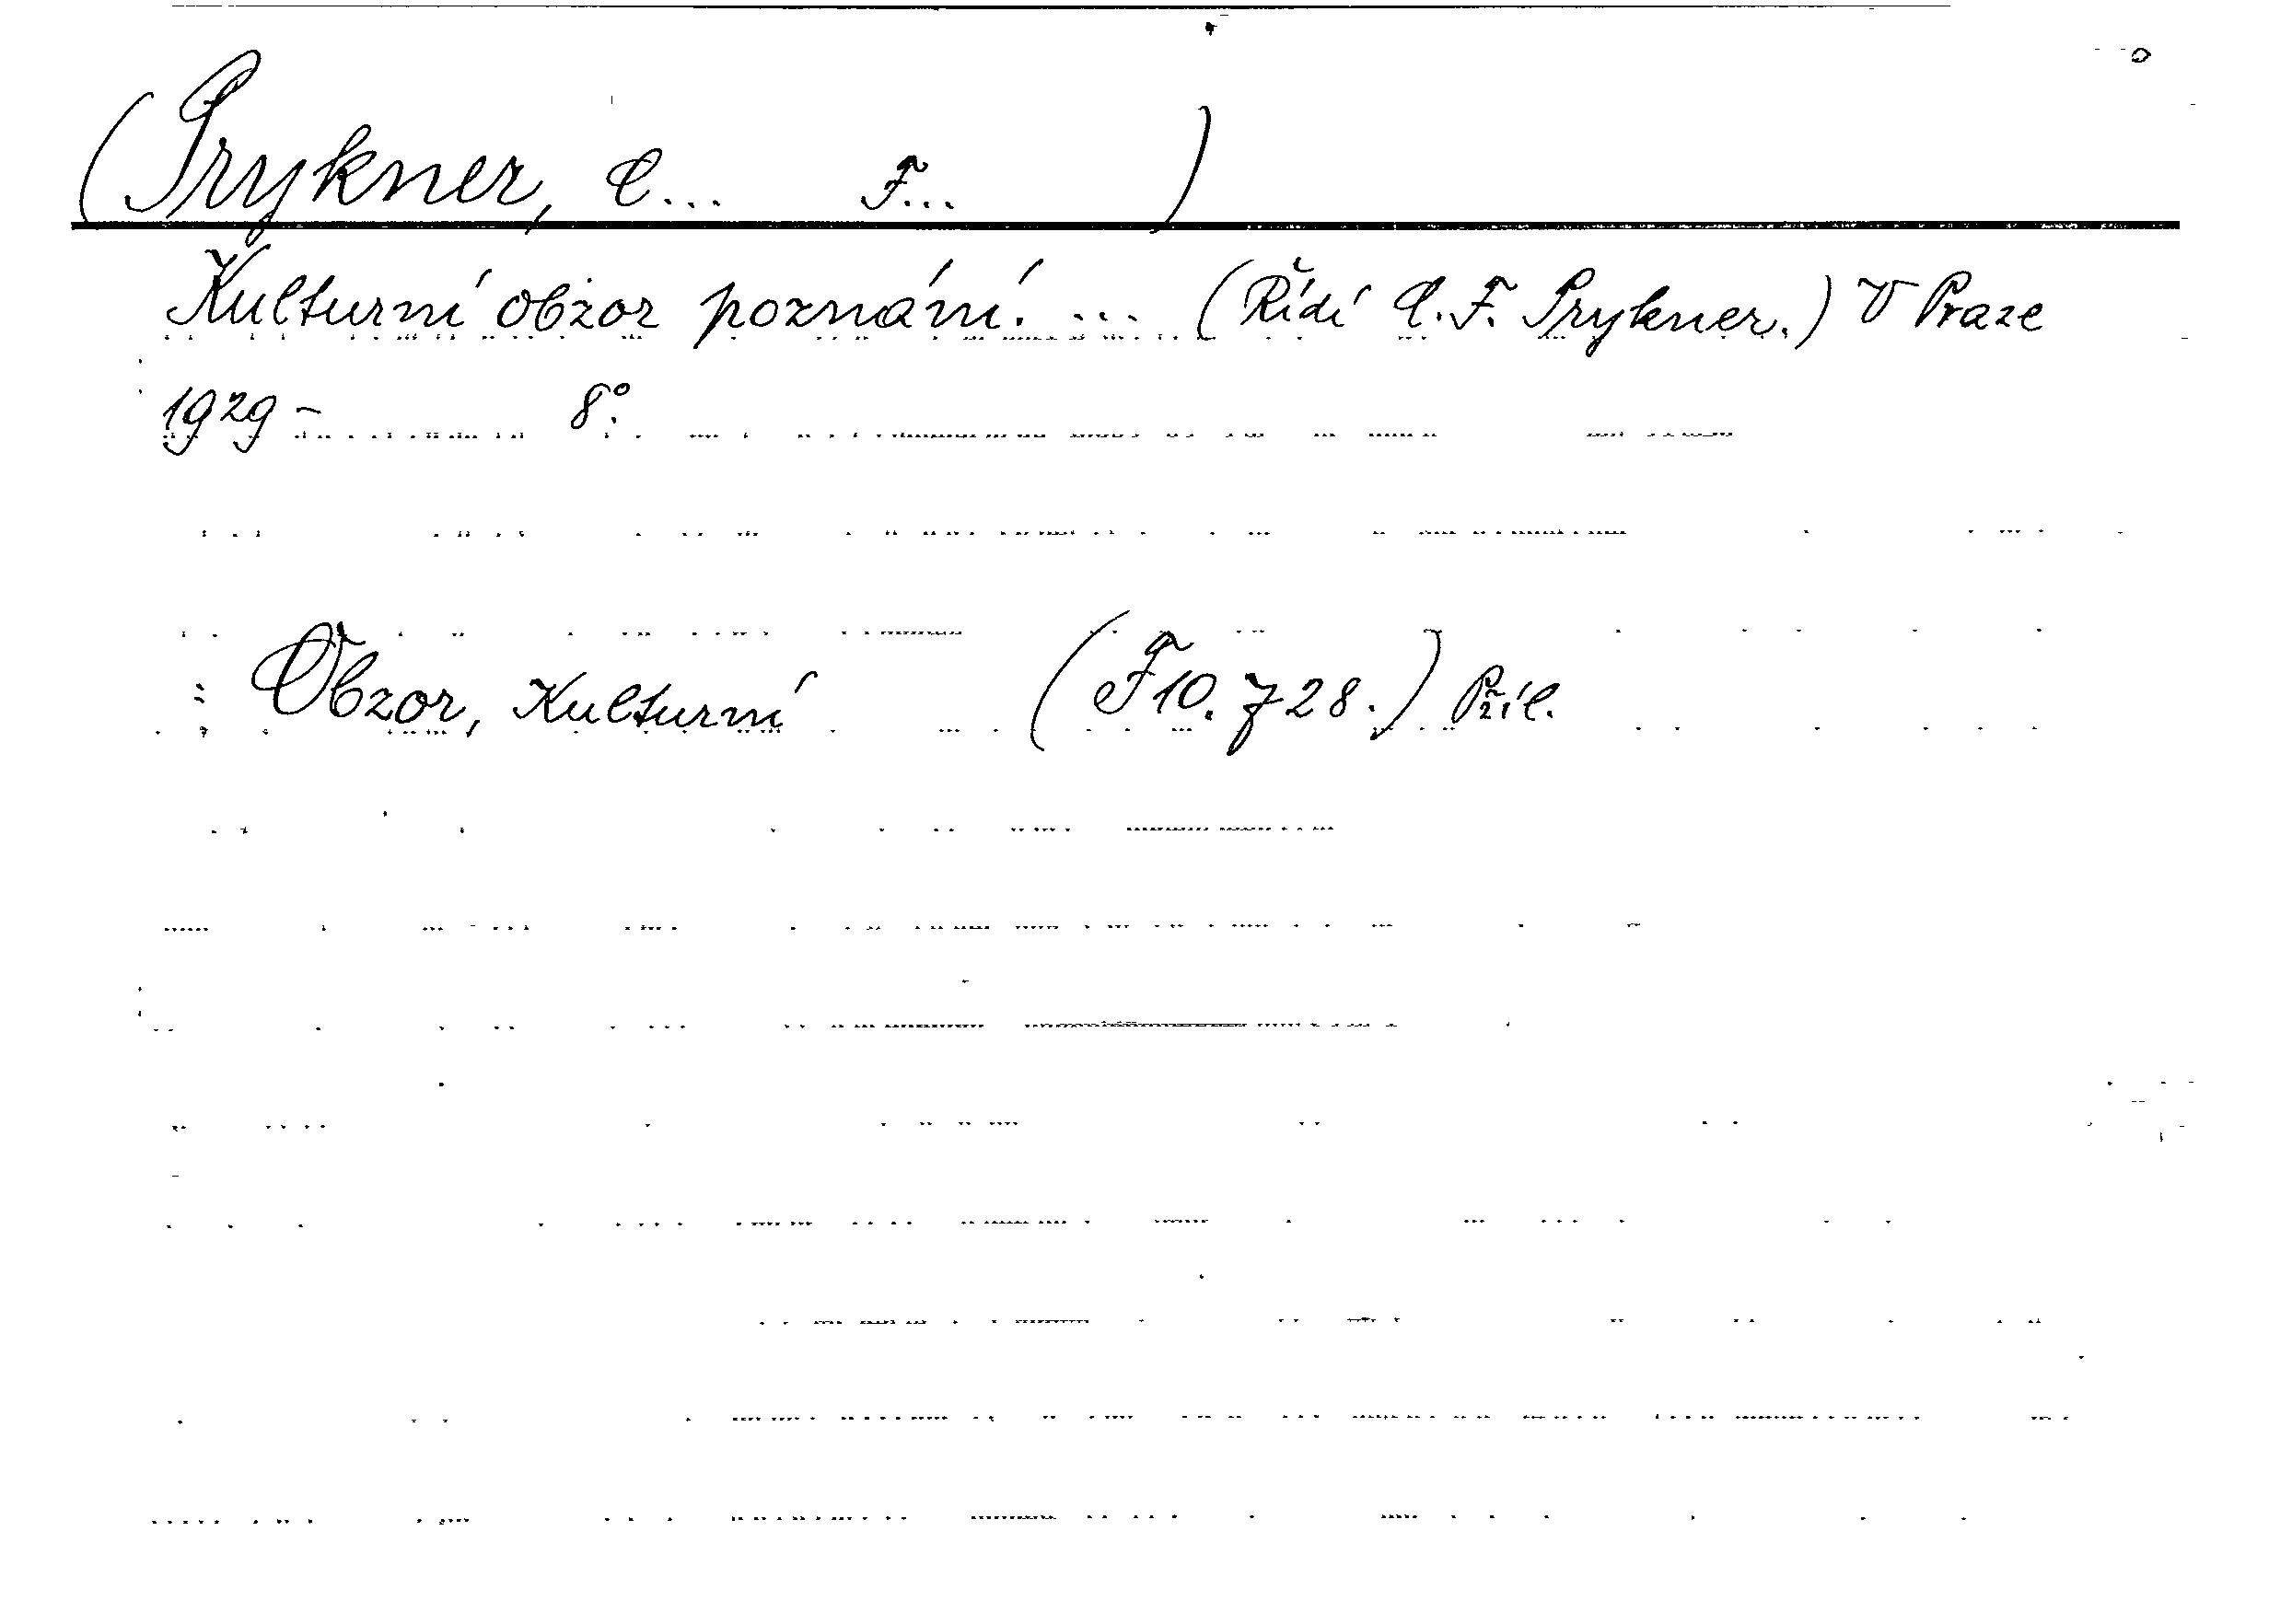 (Prykner, C... F... )
Kulturní obzor poznání. ... (Řídí C. F. Prykner.) V Praze
1929 - 8°.
: Obzor, Kulturní (F 10. 728.) Příl.